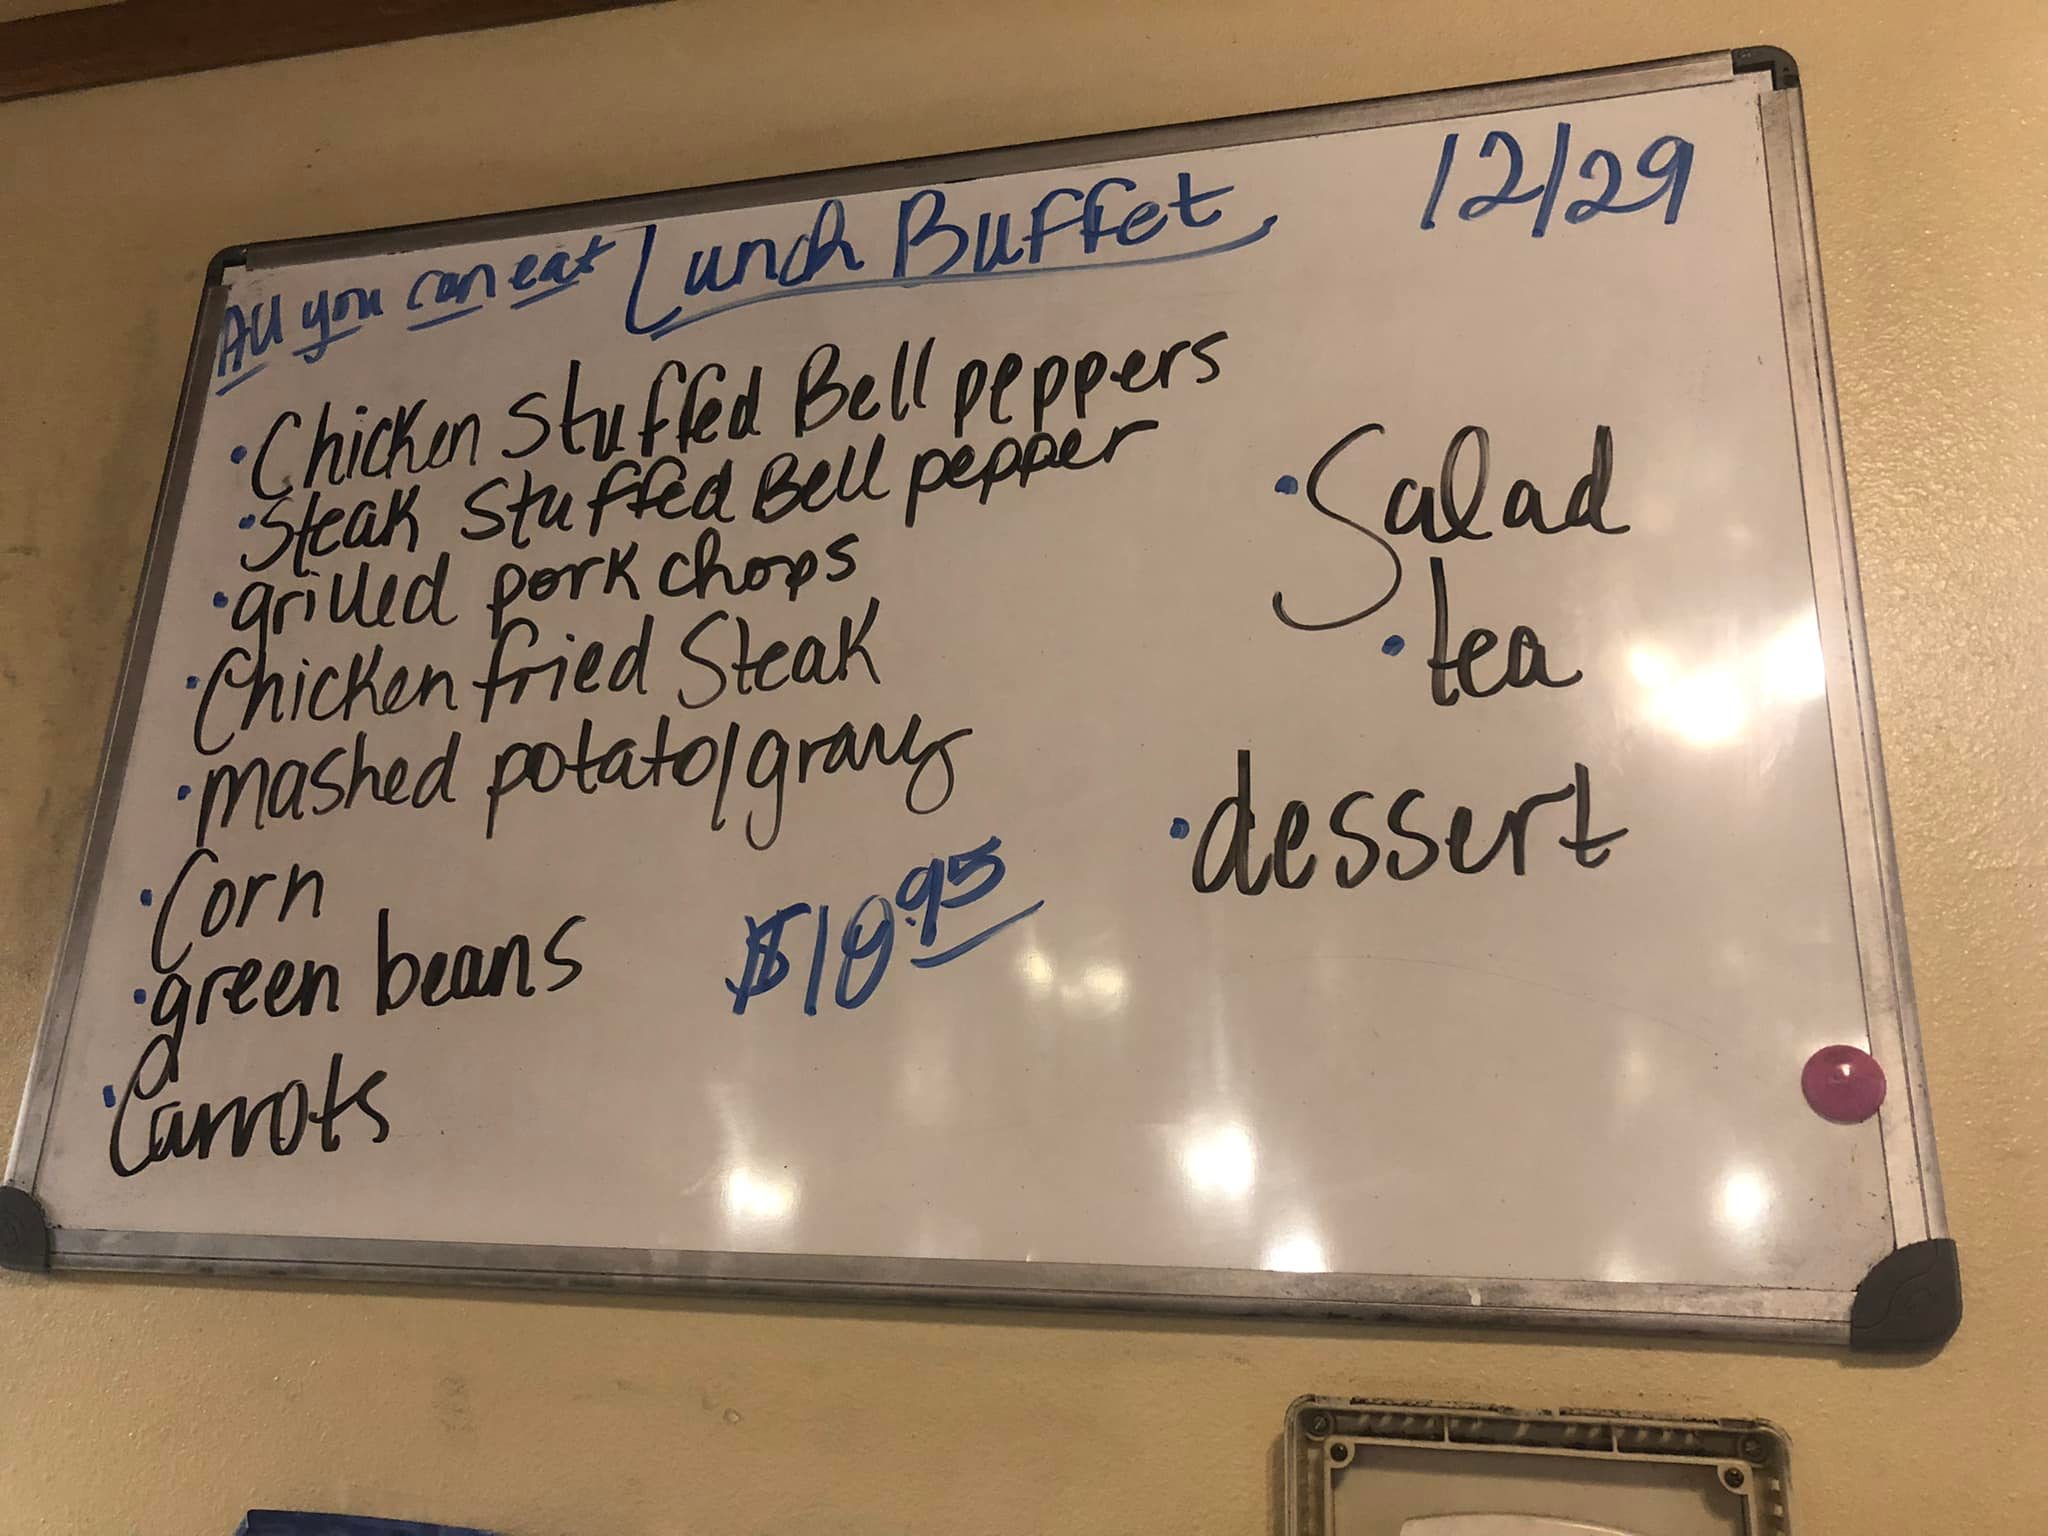 All you can eat Lunch Buffet 12/29
• Chicken Stuffed Bell peppers
• Steak Stuffed Bell pepper
• grilled pork chops
• Chicken fried Steak
• mashed potato/gravy
• Corn
• green beans
• Carrots
$10.95
• Salad
• tea
• dessert